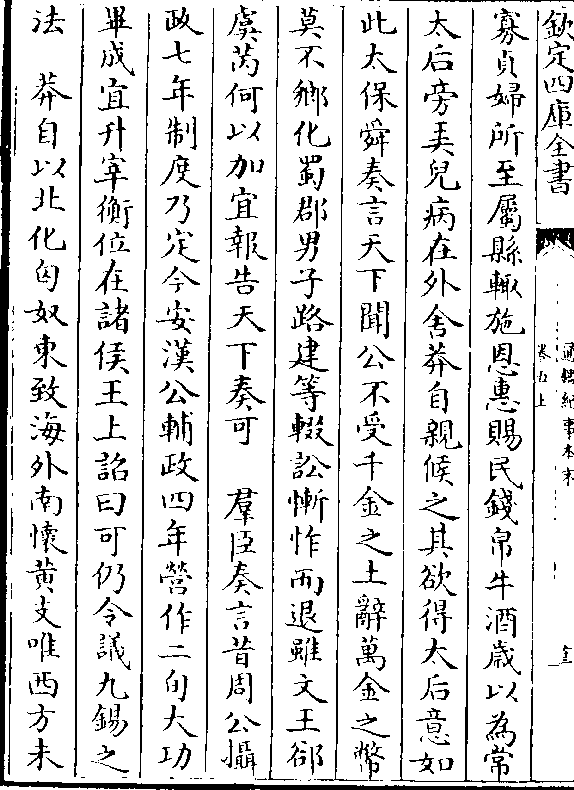 欽定四庫全書
通鑑紀事本末
卷五上
寡貞婦所至屬縣輙施恩惠賜民錢帛牛酒歳以為常
太后旁弄兒病在外舍莽自親候之其欲得太后意如
此太保舜奏言天下聞公不受千金之土辭萬金之幣
莫不鄉化蜀郡男子路建等輟訟慚怍而退雖文王郤
虞芮何以加宜報告天下奏可　羣臣奏言昔周公攝
政七年制度乃定今安漢公輔政四年營作二旬大功
畢成宜升宰衡位在諸侯王上詔曰可仍令議九錫之
法　莽自以北化匈奴東致海外南懷黄支唯西方未